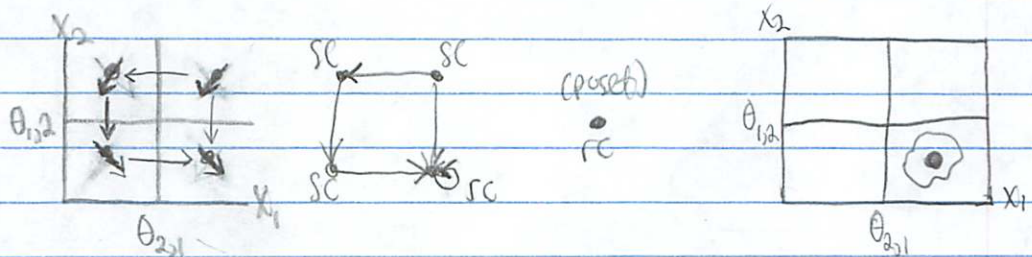 X2
θ1,2
X1
θ2,1
SC
SC
SC
SC
(poset)
rC
X2
θ1,2
X1
θ2,1